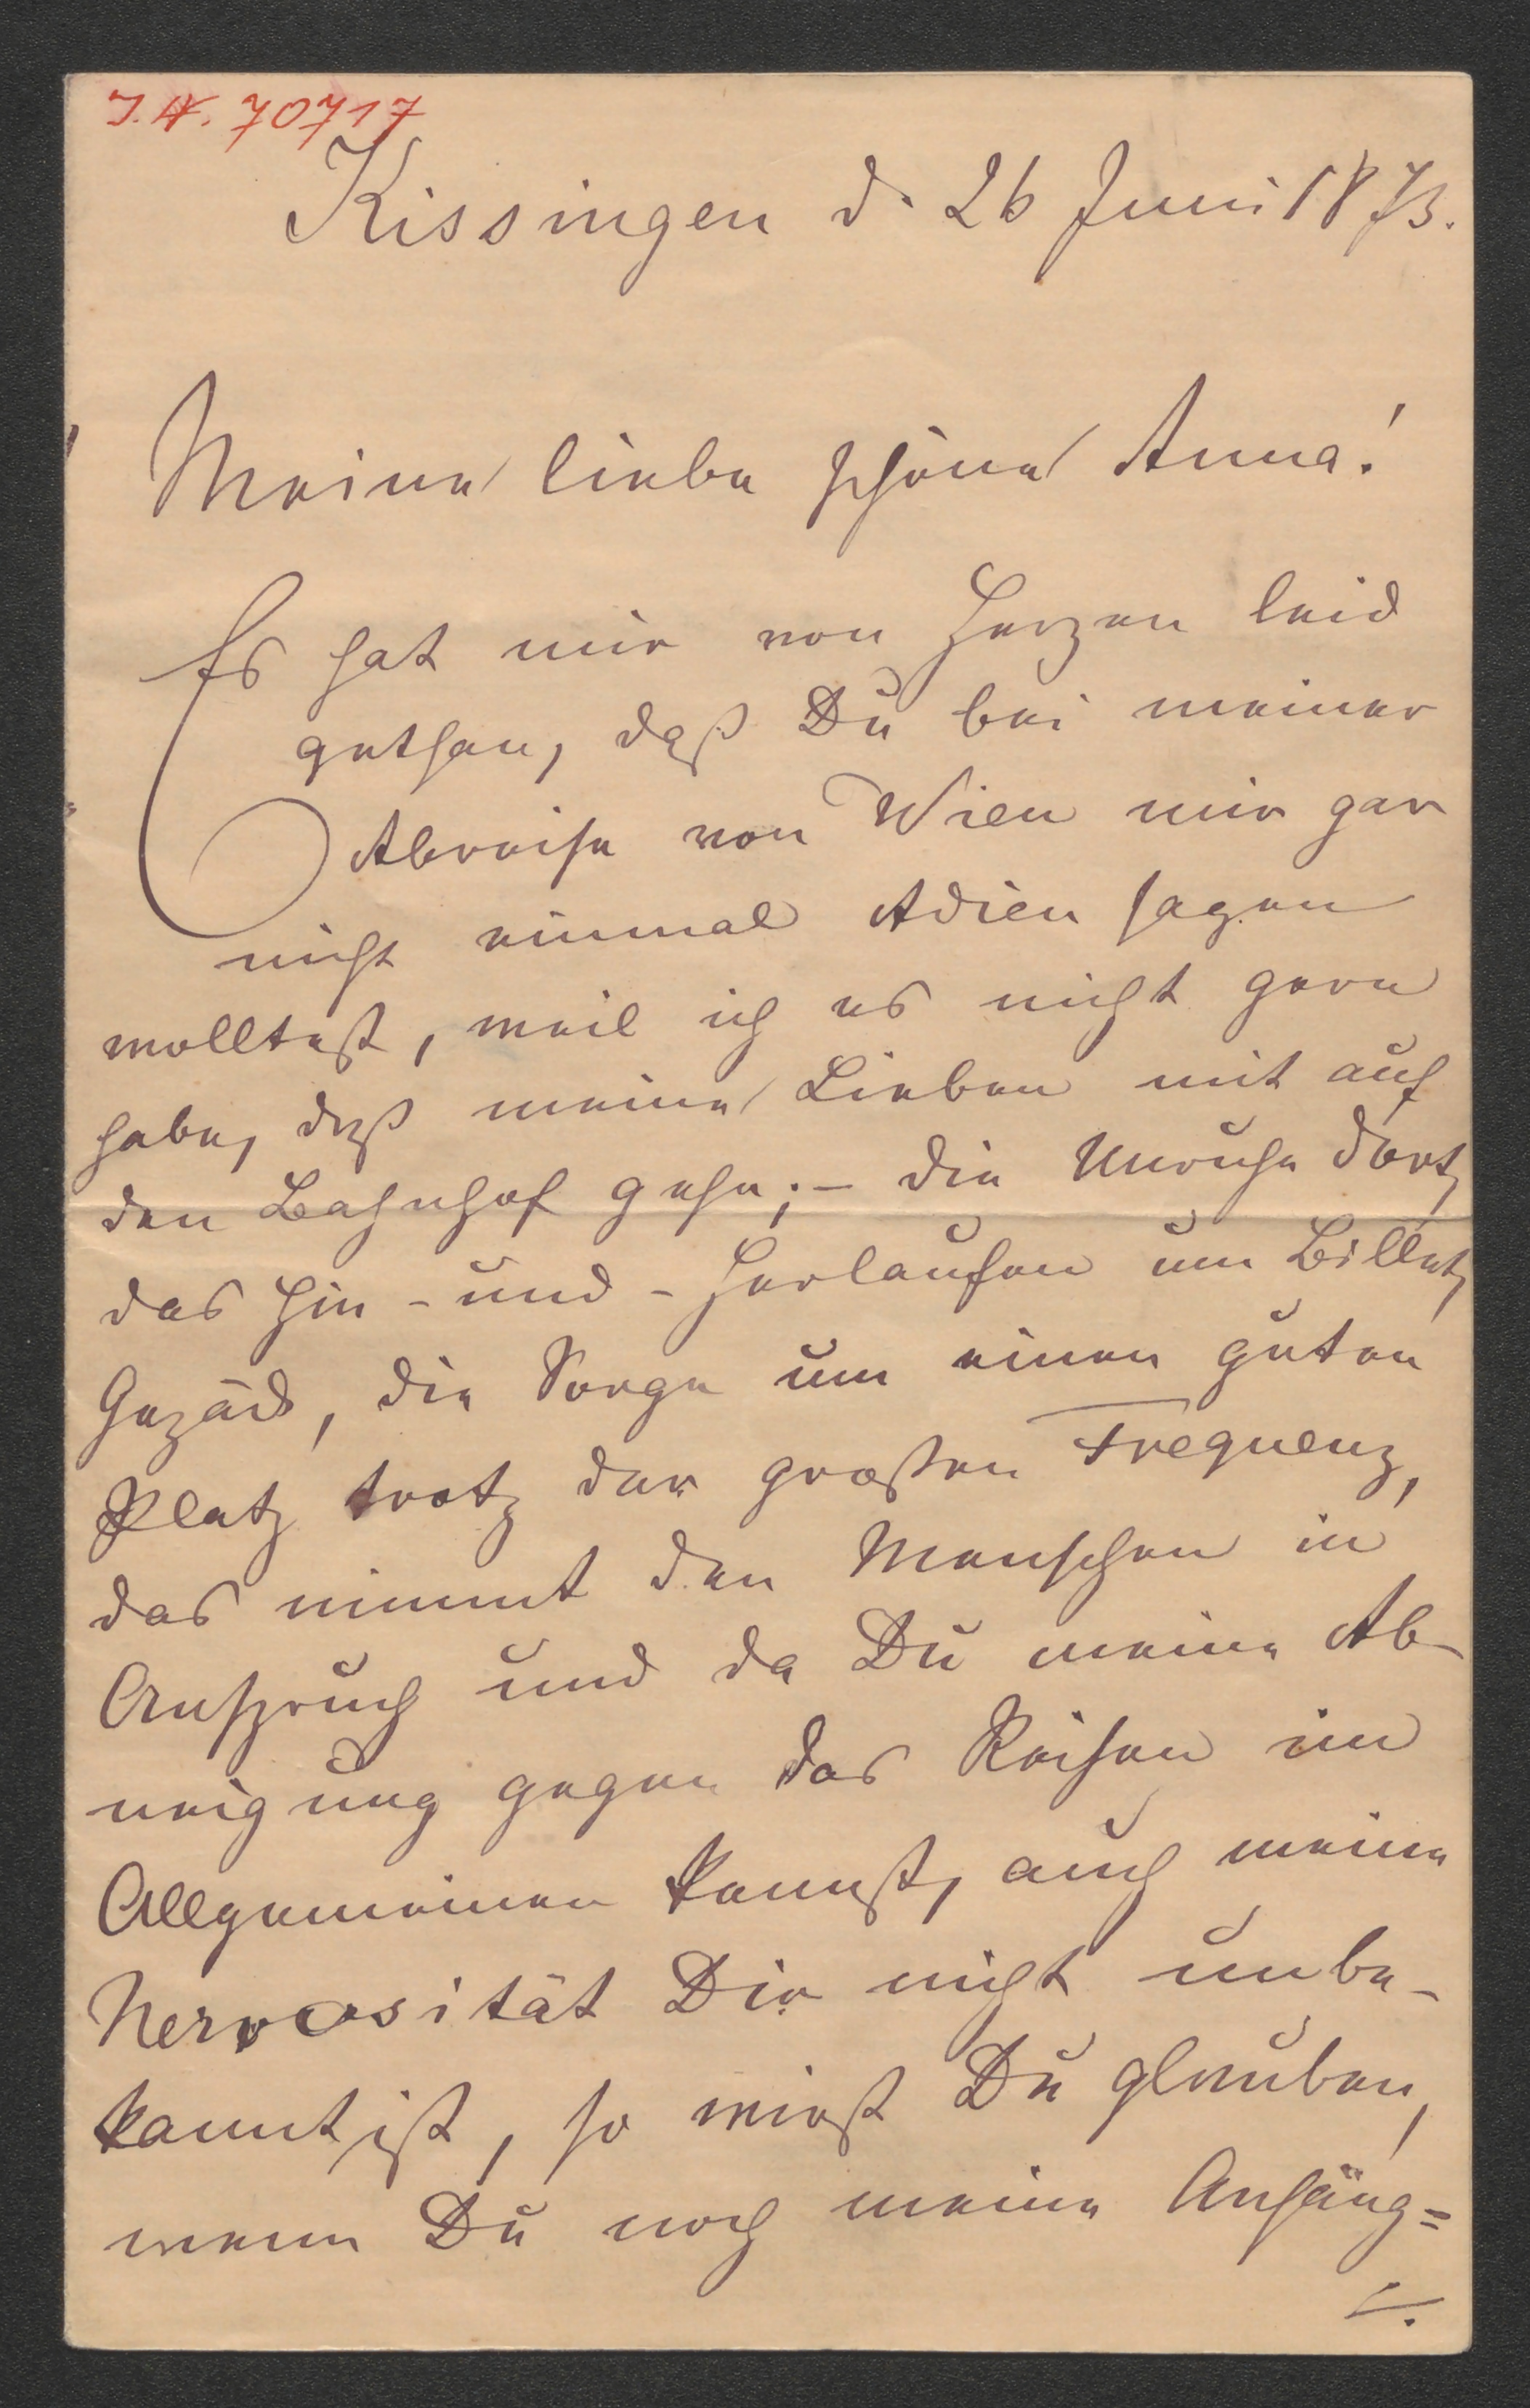 J.N. 70717
Kissingen d. 26 Juni 1873.
Meine liebe schöne Anna!
Es hat mir von Herzen leid
gethan, daß Du bei meiner
Abreise von Wien mir gar
nicht einmal Adieu sagen
wolltest, weil ich es nicht gern
habe, daß meine Lieben mit auf
den Bahnhof gehn; – die Unruhe dort,
das Hin- und -Herlaufen um Billet,
Gepäck, die Sorge um einen guten
Platz trotz der großen Frequenz,
das nimmt den Menschen in
Anspruch und da Du meine Ab-
neigung gegen das Reisen im
Allgemeinen kennst, auch meine
Nervosität Dir nicht unbe-
kannt ist, so wirst Du glauben,
wenn Du noch meine Anhäng=